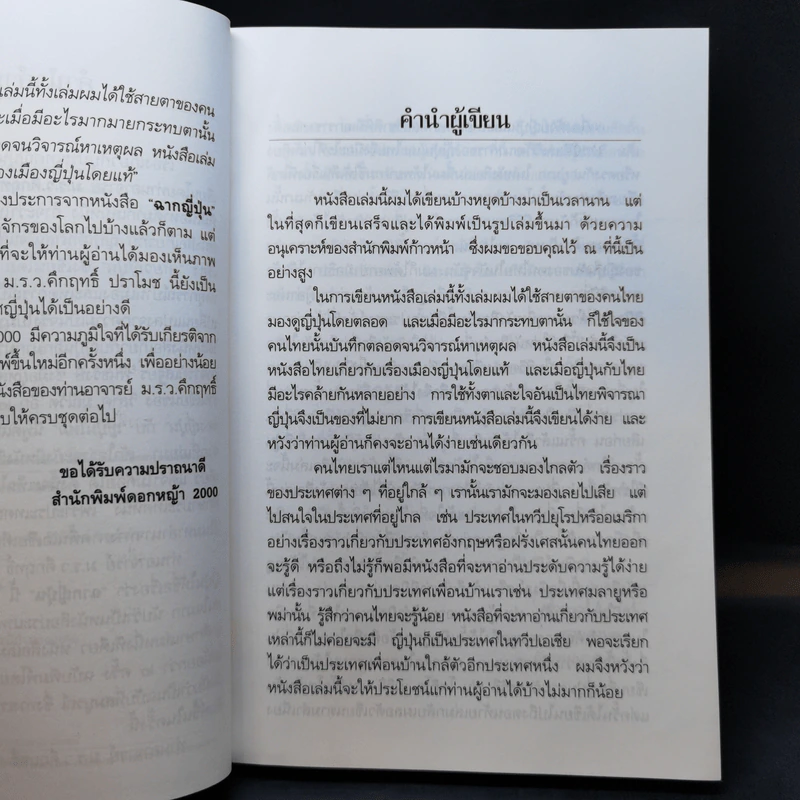 เล่มนี้ทั้งเล่มผมได้ใช้สายตาของคน
ะเมื่อมีอะไรมากมายกระทบตานั้น
ลอดจนวิจารณ์หาเหตุผล หนังสือเล่ม
องเมืองญี่ปุ่นโดยแท้"
งประการจากหนังสือ "ฉากญี่ปุ่น"
จักรของโลกไปบ้างแล้วก็ตาม แต่
ที่จะให้ท่านผู้อ่านได้มองเห็นภาพ
ม.ร.ว.คึกฤทธิ์ ปราโมช นี้ยังเป็น
ศญี่ปุ่นได้เป็นอย่างดี
000 มีความภูมิใจที่ได้รับเกียรติจาก
พ์ขึ้นใหม่อีกครั้งหนึ่ง เพื่ออย่างน้อย
นังสือของท่านอาจารย์ ม.ร.ว.คึกฤทธิ์
บให้ครบชุดต่อไป
ขอได้รับความปรารถนาดี
สำนักพิมพ์ดอกหญ้า 2000
คำนำผู้เขียน
หนังสือเล่มนี้ผมได้เขียนบ้างหยุดบ้างมาเป็นเวลานาน แต่
ในที่สุดก็เขียนเสร็จและได้พิมพ์เป็นรูปเล่มขึ้นมา ด้วยความ
อนุเคราะห์ของสำนักพิมพ์ก้าวหน้า ซึ่งผมขอขอบคุณไว้ ณ ที่นี้เป็น
อย่างสูง
ในการเขียนหนังสือเล่มนี้ทั้งเล่มผมได้ใช้สายตาของคนไทย
มองดูญี่ปุ่นโดยตลอด และเมื่อมีอะไรมากระทบตานั้น ก็ใช้ใจของ
คนไทยนั้นบันทึกตลอดจนวิจารณ์หาเหตุผล หนังสือเล่มนี้จึงเป็น
หนังสือไทยเกี่ยวกับเรื่องเมืองญี่ปุ่นโดยแท้ และเมื่อญี่ปุ่นกับไทย
มีอะไรคล้ายกันหลายอย่าง การใช้ทั้งตาและใจอันเป็นไทยพิจารณา
ญี่ปุ่นจึงเป็นของที่ไม่ยาก การเขียนหนังสือเล่มนี้จึงเขียนได้ง่าย และ
หวังว่าท่านผู้อ่านก็คงจะอ่านได้ง่ายเช่นเดียวกัน
คนไทยเราแต่ไหนแต่ไรมามักจะชอบมองไกลตัว เรื่องราว
ของประเทศต่าง ๆ ที่อยู่ใกล้ ๆ เรานั้นเรามักจะมองเลยไปเสีย แต่
ไปสนใจในประเทศที่อยู่ไกล เช่น ประเทศในทวีปยุโรปหรืออเมริกา
อย่างเรื่องราวเกี่ยวกับประเทศอังกฤษหรือฝรั่งเศสนั้นคนไทยออก
จะรู้ดี หรือถึงไม่รู้ก็พอมีหนังสือที่จะหาอ่านประดับความรู้ได้ง่าย
แต่เรื่องราวเกี่ยวกับประเทศเพื่อนบ้านเราเช่น ประเทศมลายูหรือ
พม่านั้น รู้สึกว่าคนไทยจะรู้น้อย หนังสือที่จะหาอ่านเกี่ยวกับประเทศ
เหล่านี้ก็ไม่ค่อยจะมี ญี่ปุ่นก็เป็นประเทศในทวีปเอเชีย พอจะเรียก
ได้ว่าเป็นประเทศเพื่อนบ้านใกล้ตัวอีกประเทศหนึ่ง ผมจึงหวังว่า
หนังสือเล่มนี้จะให้ประโยชน์แก่ท่านผู้อ่านได้บ้างไม่มากก็น้อย